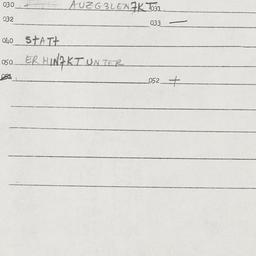 030 AUZG3LEN7KT 031
032 033 —
040 STATT
050 ERHIN7KT UNTER
052 +